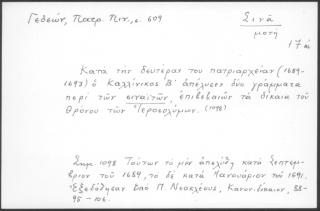 Γεδεών, Πατρ. Πιν., σ. 609
Σινᾶ
μονή
17 αἰ.
Κατὰ τῆς δευτέραν του πατριαρχείαν (1689-
1693) ὁ Καλλίνικος Β΄ ἀπέλυσε δύο γράμματα
περὶ τῶν σιναϊτῶν, ἐπιβεβαιῶν τὰ δίκαια τοῦ
θρόνου τῶν Ἱεροσολύμων. (1098)
Σημ. 1098 Τούτων τὸ μὲν ἀπελύθη κατὰ Σεπτέμ-
βριον τοῦ 1689, τὸ δὲ κατὰ Ἰανουάριον τοῦ 1691.
Ἐξεδόθησαν ὑπὸ Π. Νεοκλέους, Κανον. δίκαιον, 88-
95 - 106.